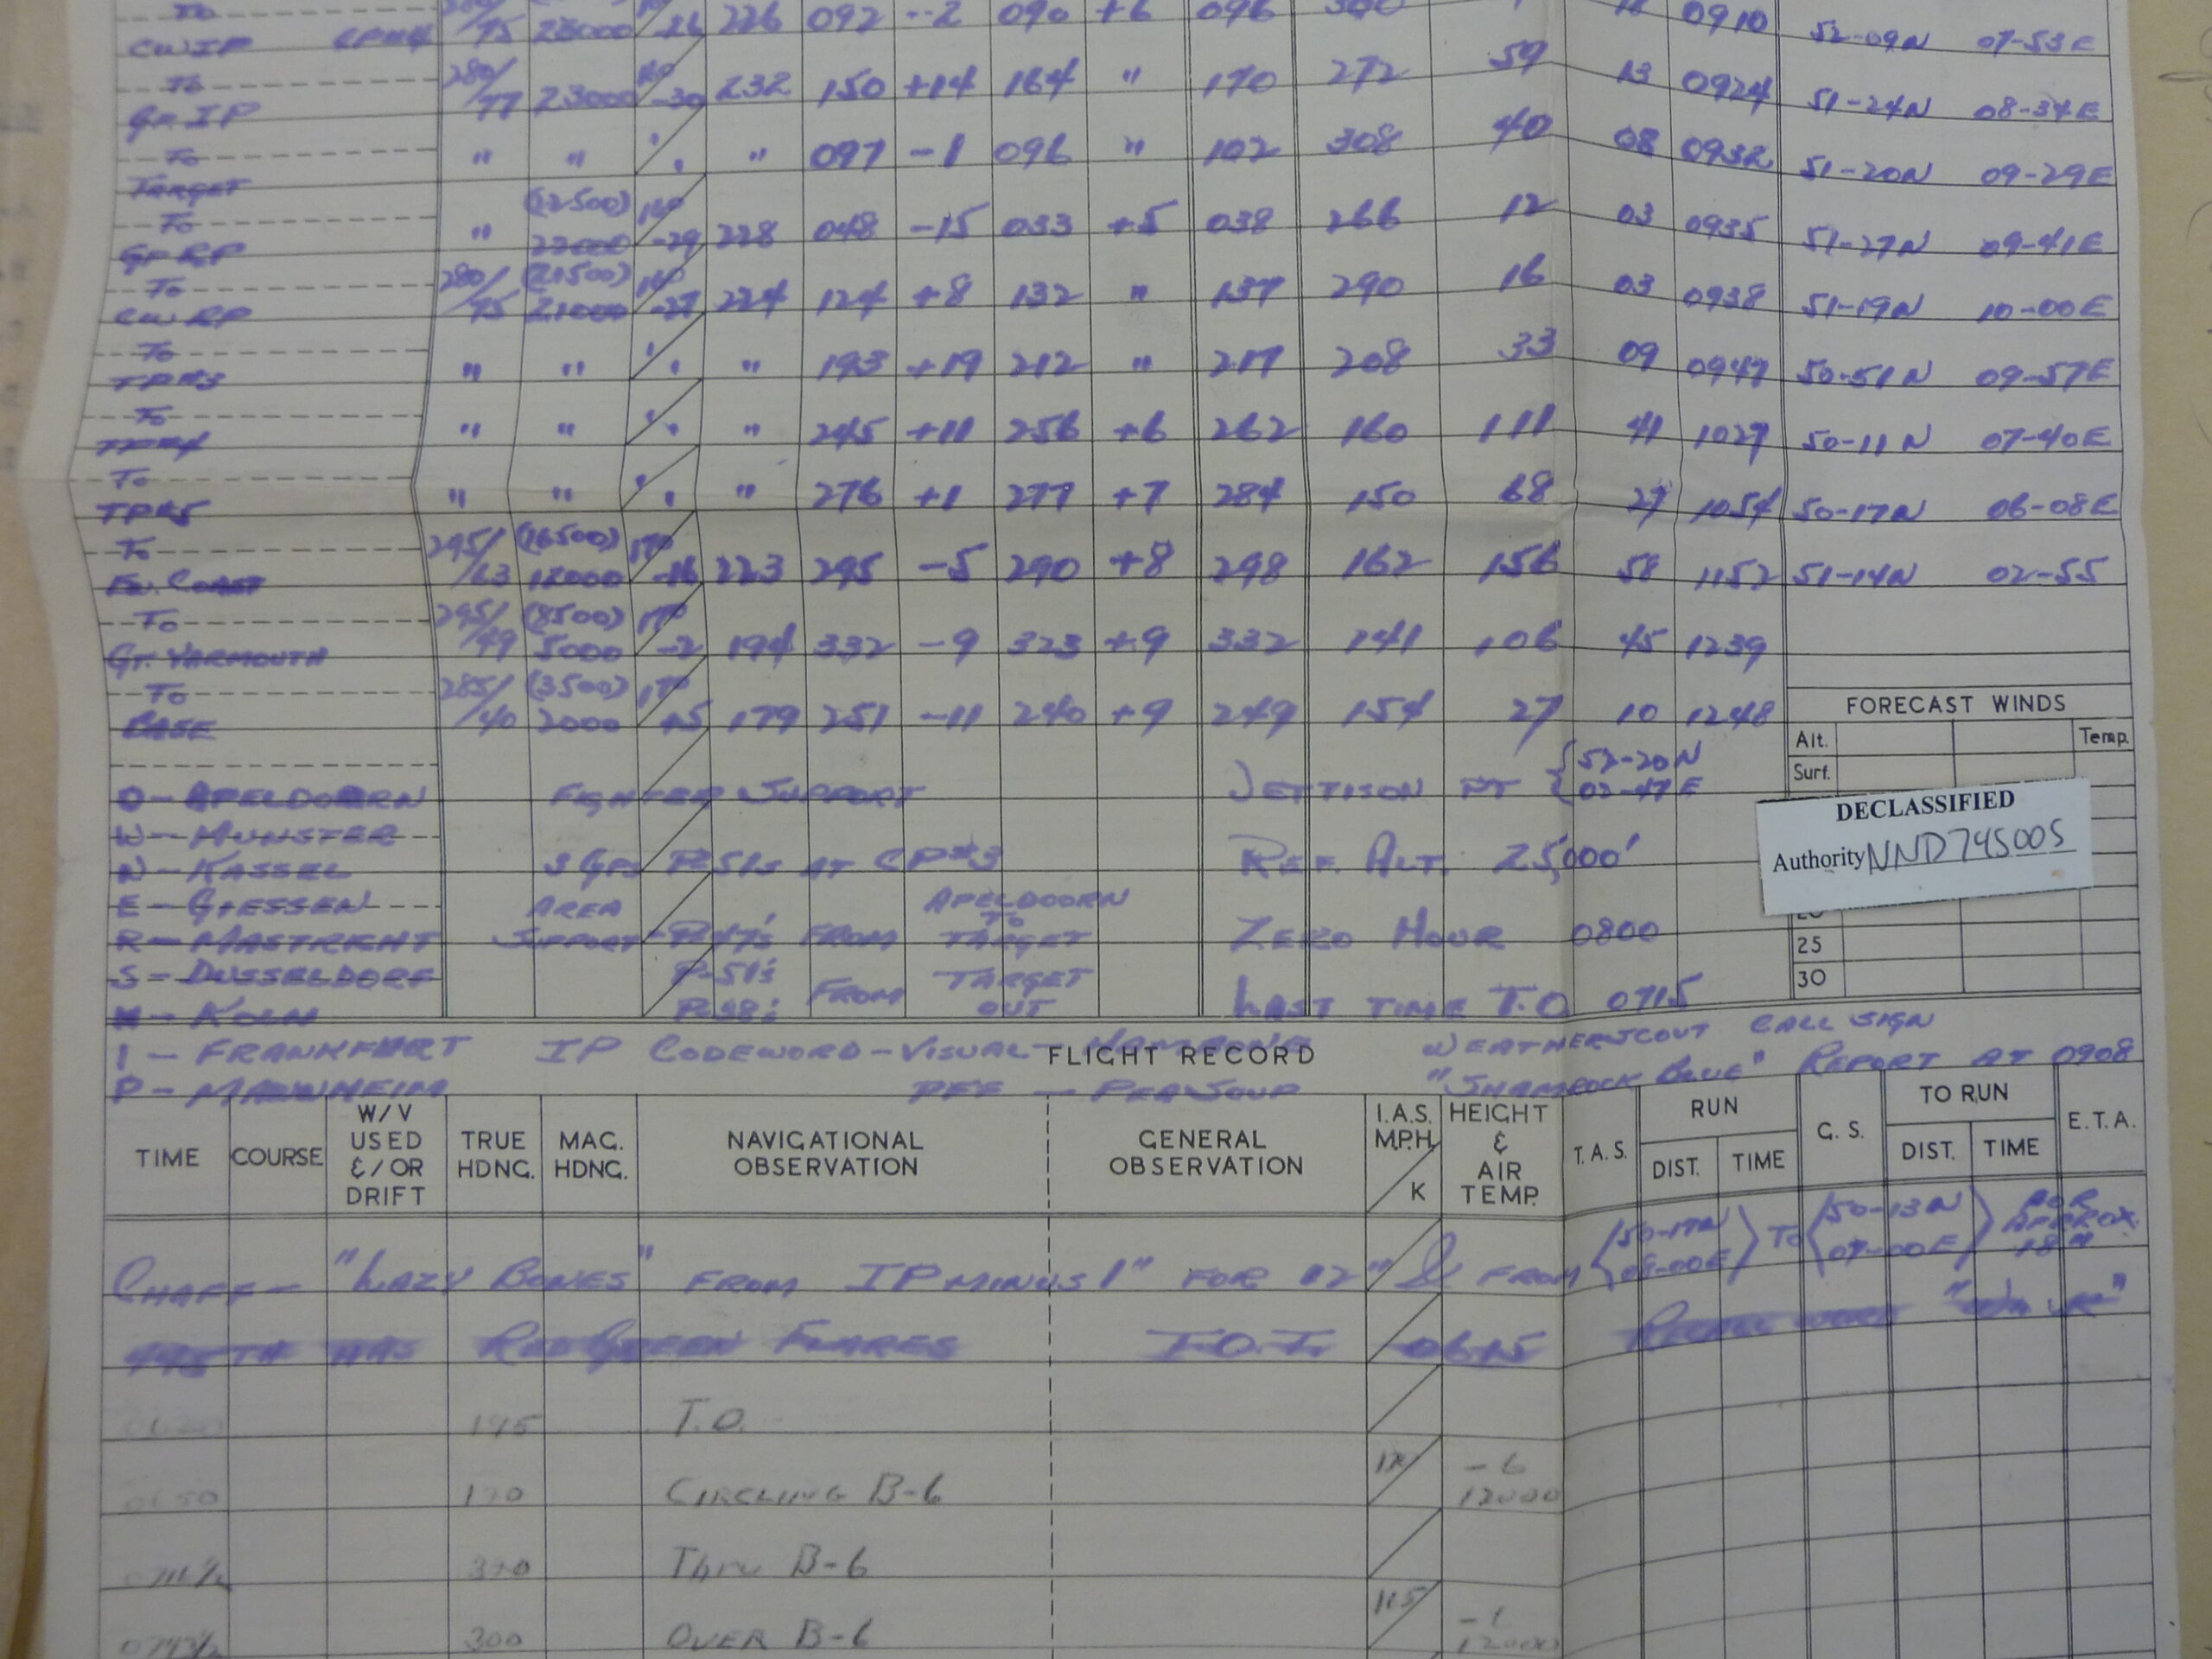 To
CWIP CPM4 75 23000 -26 226 092 --2 090 +6 096 300 12 0910 52-09N 07-53E
To 280/ 160
GP. IP 77 23000 -30 232 150 +14 164 " 170 272 59 13 0924 51-24N 08-34E
To " " " " " 097 -1 096 " 102 308 40 08 0932 51-20N 09-29E
TARGET
To (22500) 160
GP RP " 22000 -29 228 048 -15 033 +5 038 266 12 03 0935 51-27N 09-41E
To 280/ (21500) 160
CW RP 75 21000 -27 224 124 +8 132 " 137 290 16 03 0938 51-19N 10-00E
To
TPR#3 " " " " " 193 +19 212 " 217 208 33 09 0947 50-51N 09-57E
To
TPR#4 " " " " " 245 +11 256 +6 262 160 111 41 1027 50-11N 07-40E
To
TPR5 " " " " " 276 +1 277 +7 284 150 68 27 1054 50-17N 06-08E
To 295/ (16500) 170
En. Coast /63 12000 -16 223 295 -5 290 +8 298 162 156 58 1152 51-14N 02-55
To 295/ (8500) 170
GT. YARMOUTH /49 5000 -2 194 332 -9 323 +9 332 141 106 45 1239
To 285/ (3500) 170
BASE /40 2000 +5 179 251 -11 240 +9 249 154 27 10 1248
FORECAST WINDS
Alt. Temp.
Surf.
O - APELDOORN FIGHTER SUPPORT JETTISON PT { 52-20N
02-47E
W - MUNSTER
N - KASSEL 3 GPS P-51s AT CP#3 REF. ALT. 25,000'
DECLASSIFIED
Authority NND745005
E - GIESSEN AREA APELDOORN
R - MASTRICHT SUPPORT - P-47's FROM TO TARGET ZERO HOUR 0800
25
S - DUSSELDORF P-51's FROM TARGET
30
K - KOLN P-38's OUT LAST TIME T.O 0715
I - FRANKFURT IP CODEWORD - VISUAL - FLIGHT RECORD WEATHERSCOUT CALL SIGN
P - MANNHEIM PFF - PEASOUP "SHAMROCK BLUE" REPORT AT 0908
TIME COURSE W/V USED &/OR DRIFT TRUE HDNG. MAG. HDNG. NAVIGATIONAL OBSERVATION GENERAL OBSERVATION I.A.S. M.P.H. K HEIGHT & AIR TEMP. T.A.S. RUN DIST. TIME G.S. TO RUN DIST. TIME E.T.A.
CHAFF - "LAZY BONES" FROM IP MINUS 1" FOR 12" & FROM {50-17N 08-00E} TO {50-13N 07-00E} FOR APPROX. 18 M
RED GREEN FLARES T.O.T. 0615
195 T.O.
0650 170 CIRCLING B-6 170 -6 12000
Thru B-6
300 OVER B-6 165 12000